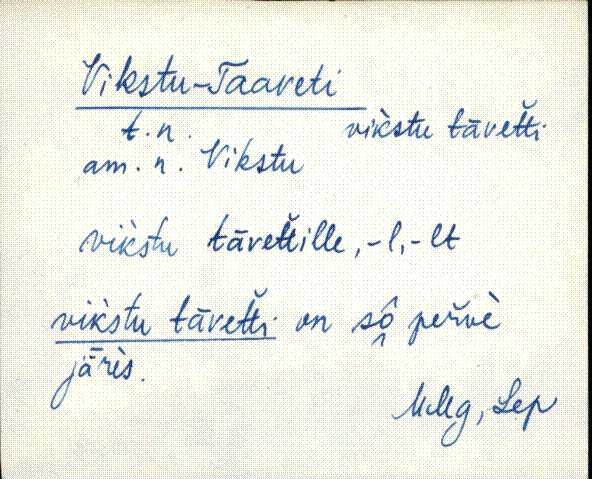 Vikstu-Taaveti
t. n. vik̀stu tāvet̆ti
am. n. Vikstu
vik̀stu tāvet̆tille, -l, -lt
vik̀stu tāvet̆ti on sô̭ per̆vè
järès.
MMg, Lep